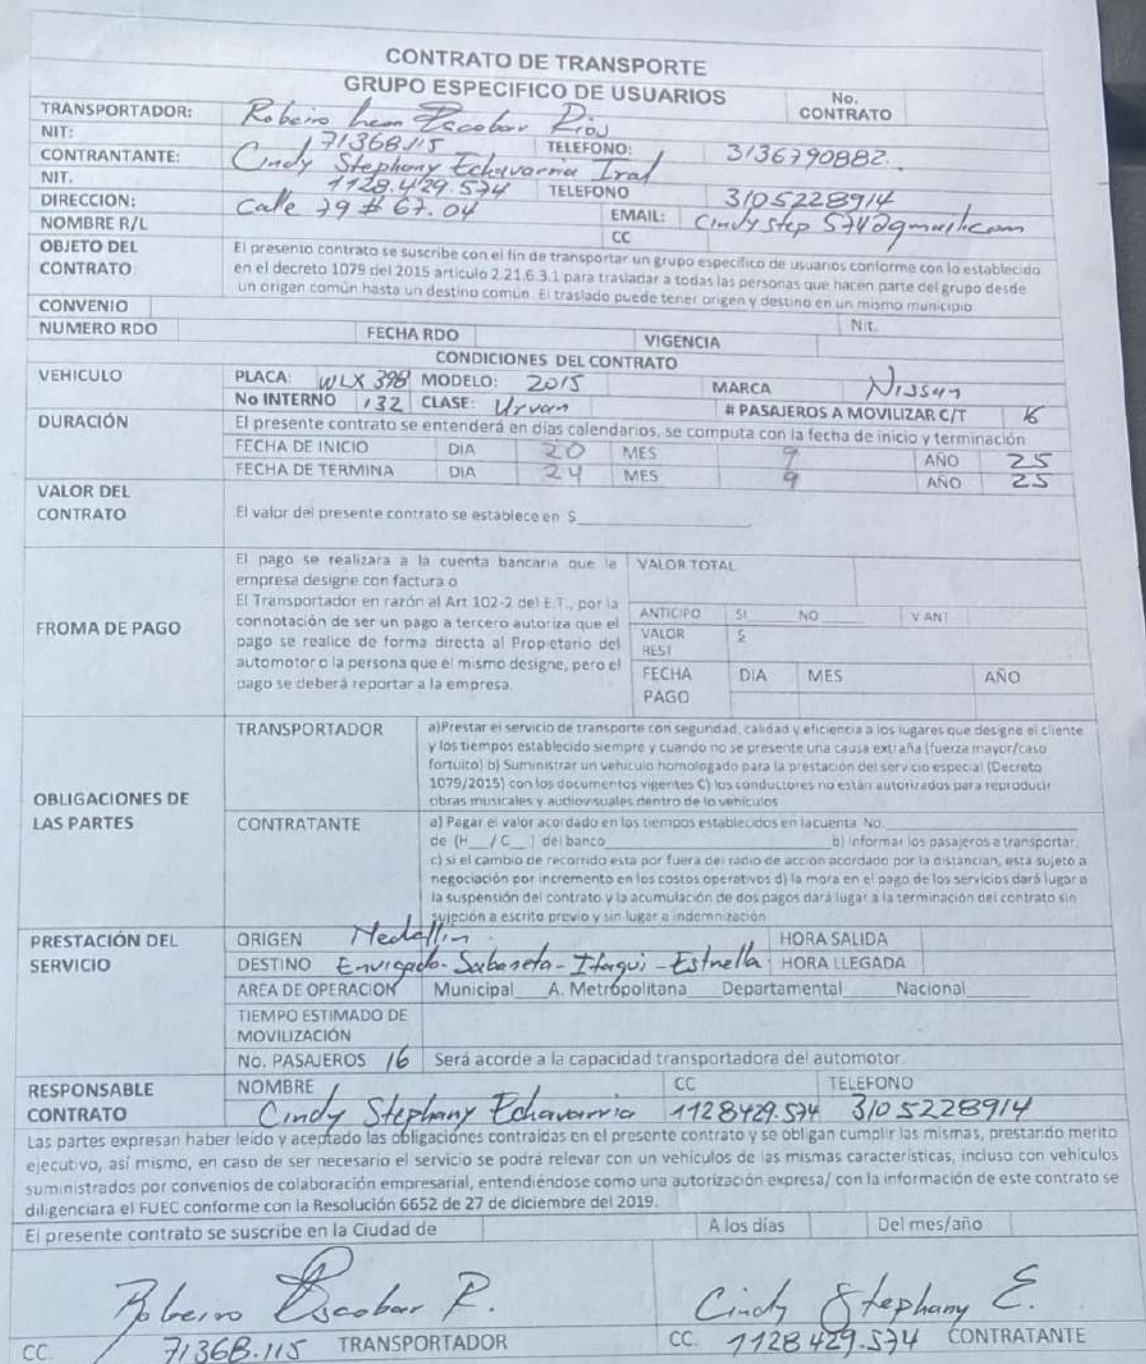 CONTRATO DE TRANSPORTE
GRUPO ESPECIFICO DE USUARIOS
No. CONTRATO
TRANSPORTADOR: Robeiro Escobar Rios
NIT: 71368.115 TELEFONO: 3136790882.
CONTRANTANTE: Cindy Stephany Echavarria Iral
NIT. 1128.429.574 TELEFONO 3105228914
DIRECCION: Calle 79 # 67.04 EMAIL: Cindystep574@gmail.com
NOMBRE R/L CC
OBJETO DEL CONTRATO
El presento contrato se suscribe con el fin de transportar un grupo especifico de usuarios conforme con lo establecido
en el decreto 1079 del 2015 articulo 2.21.6.3.1 para trasladar a todas las personas que hacen parte del grupo desde
un origen común hasta un destino común. El traslado puede tener origen y destino en un mismo municipio
CONVENIO Nit.
NUMERO RDO FECHA RDO VIGENCIA
CONDICIONES DEL CONTRATO
VEHICULO PLACA: WLX 398 MODELO: 2015 MARCA Nissan
No INTERNO 132 CLASE: Urvan # PASAJEROS A MOVILIZAR C/T 16
DURACIÓN El presente contrato se entenderá en días calendarios, se computa con la fecha de inicio y terminación
FECHA DE INICIO DIA 20 MES 9 AÑO 25
FECHA DE TERMINA DIA 24 MES 9 AÑO 25
VALOR DEL CONTRATO
El valor del presente contrato se establece en $
FROMA DE PAGO
El pago se realizara a la cuenta bancaria que la
empresa designe con factura o
El Transportador en razón al Art 102-2 del E.T., por la
connotación de ser un pago a tercero autoriza que el
pago se realice de forma directa al Propietario del
automotor o la persona que él mismo designe, pero el
pago se deberá reportar a la empresa.
VALOR TOTAL
ANTICIPO SI NO V ANT
VALOR REST $
FECHA PAGO DIA MES AÑO
OBLIGACIONES DE LAS PARTES
TRANSPORTADOR
a)Prestar el servicio de transporte con seguridad, calidad y eficiencia a los lugares que designe el cliente
y los tiempos establecido siempre y cuando no se presente una causa extraña (fuerza mayor/caso
fortuito) b) Suministrar un vehículo homologado para la prestación del servicio especial (Decreto
1079/2015) con los documentos vigentes C) los conductores no están autorizados para reproducir
obras musicales y audiovisuales dentro de lo vehículos
CONTRATANTE
a) Pagar el valor acordado en los tiempos establecidos en lacuenta No.
de (H__/C__) del banco b) Informar los pasajeros a transportar,
c) si el cambio de recorrido esta por fuera del radio de acción acordado por la distancian, esta sujeto a
negociación por incremento en los costos operativos d) la mora en el pago de los servicios dará lugar a
la suspensión del contrato y la acumulación de dos pagos dará lugar a la terminación del contrato sin
sujeción a escrito previo y sin lugar a indemnización
PRESTACIÓN DEL SERVICIO
ORIGEN Medellin. HORA SALIDA
DESTINO Envigado-Sabaneta-Itagui-Estrella HORA LLEGADA
AREA DE OPERACION Municipal___A. Metropolitana___Departamental___Nacional___
TIEMPO ESTIMADO DE
MOVILIZACIÓN
No. PASAJEROS 16 Será acorde a la capacidad transportadora del automotor.
RESPONSABLE CONTRATO
NOMBRE CC TELEFONO
Cindy Stephany Echavarria 1128429.574 3105228914
Las partes expresan haber leído y aceptado las obligaciones contraidas en el presente contrato y se obligan cumplir las mismas, prestando merito
ejecutivo, así mismo, en caso de ser necesario el servicio se podrá relevar con un vehículos de las mismas características, incluso con vehículos
suministrados por convenios de colaboración empresarial, entendiéndose como una autorización expresa/ con la información de este contrato se
diligenciara el FUEC conforme con la Resolución 6652 de 27 de diciembre del 2019.
El presente contrato se suscribe en la Ciudad de A los días Del mes/año
Robeiro Escobar R. Cindy Stephany E.
CC. 71368.115 TRANSPORTADOR CC. 1128429.574 CONTRATANTE